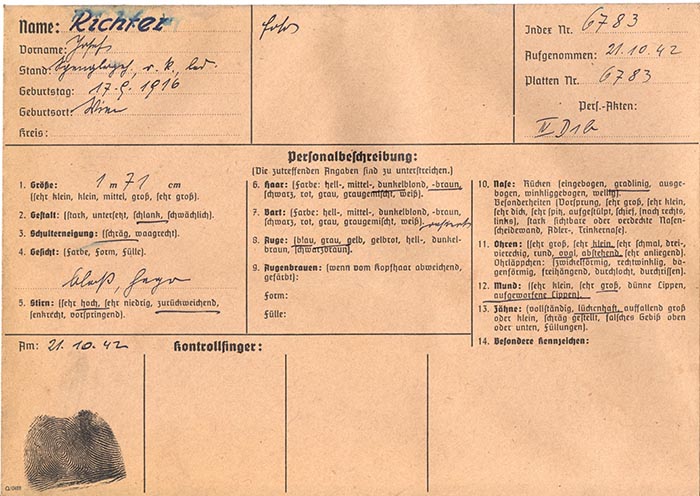 Name: Richter
Vorname: Josef
Stand: r. k., led.
Geburtstag: 17. 9. 1916
Geburtsort: Wien
Kreis:
Foto
Index Nr. 6783
Aufgenommen: 21.10.42
Platten Nr. 6783
Pers.-Akten:
II D1b
Personalbeschreibung:
(Die zutreffenden Angaben sind zu unterstreichen.)
1. Größe: 1 m 71 cm
(sehr klein, klein, mittel, groß, sehr groß).
2. Gestalt: (stark, untersetzt, schlank, schwächlich).
3. Schulterneigung: (schräg, waagrecht).
4. Gesicht: (Farbe, Form, Fülle).
blaß, hager
5. Stirn: (sehr hoch, sehr niedrig, zurückweichend,
senkrecht, vorspringend).
6. Haar: (Farbe: hell-, mittel-, dunkelblond, -braun,
schwarz, rot, grau, graugemischt, weiß).
7. Bart: (Farbe: hell-, mittel-, dunkelblond, -braun,
schwarz, rot, grau, graugemischt, weiß) rasiert
8. Auge: (blau, grau, gelb, gelbrot, hell-, dunkel-
braun, schwarzbraun).
9. Augenbrauen: (wenn vom Kopfhaar abweichend,
gefärbt):
Form:
Fülle:
10. Nase: Rücken (eingebogen, gradlinig, ausge-
bogen, winkliggebogen, wellig).
Besonderheiten (Vorsprung, sehr groß, sehr klein,
sehr dick, sehr spitz, aufgestülpt, schief, (nach rechts,
links), stark sichtbare oder verdeckte Nasen-
scheidewand, Adler-, Trinkernase).
11. Ohren: (sehr groß, sehr klein, sehr schmal, drei-,
viereckig, rund, oval, abstehend, sehr anliegend).
Ohrläppchen: (zwickelförmig, rechtwinklig, bo-
genförmig, freihängend, durchlocht, durchrissen).
12. Mund: (sehr klein, sehr groß, dünne Lippen,
aufgeworfene Lippen).
13. Zähne: (vollständig, lückenhaft, auffallend groß
oder klein, schräg gestellt, falsches Gebiß oben
oder unten, Füllungen).
14. Besondere Kennzeichen:
Am: 21.10.42
Kontrollfinger: